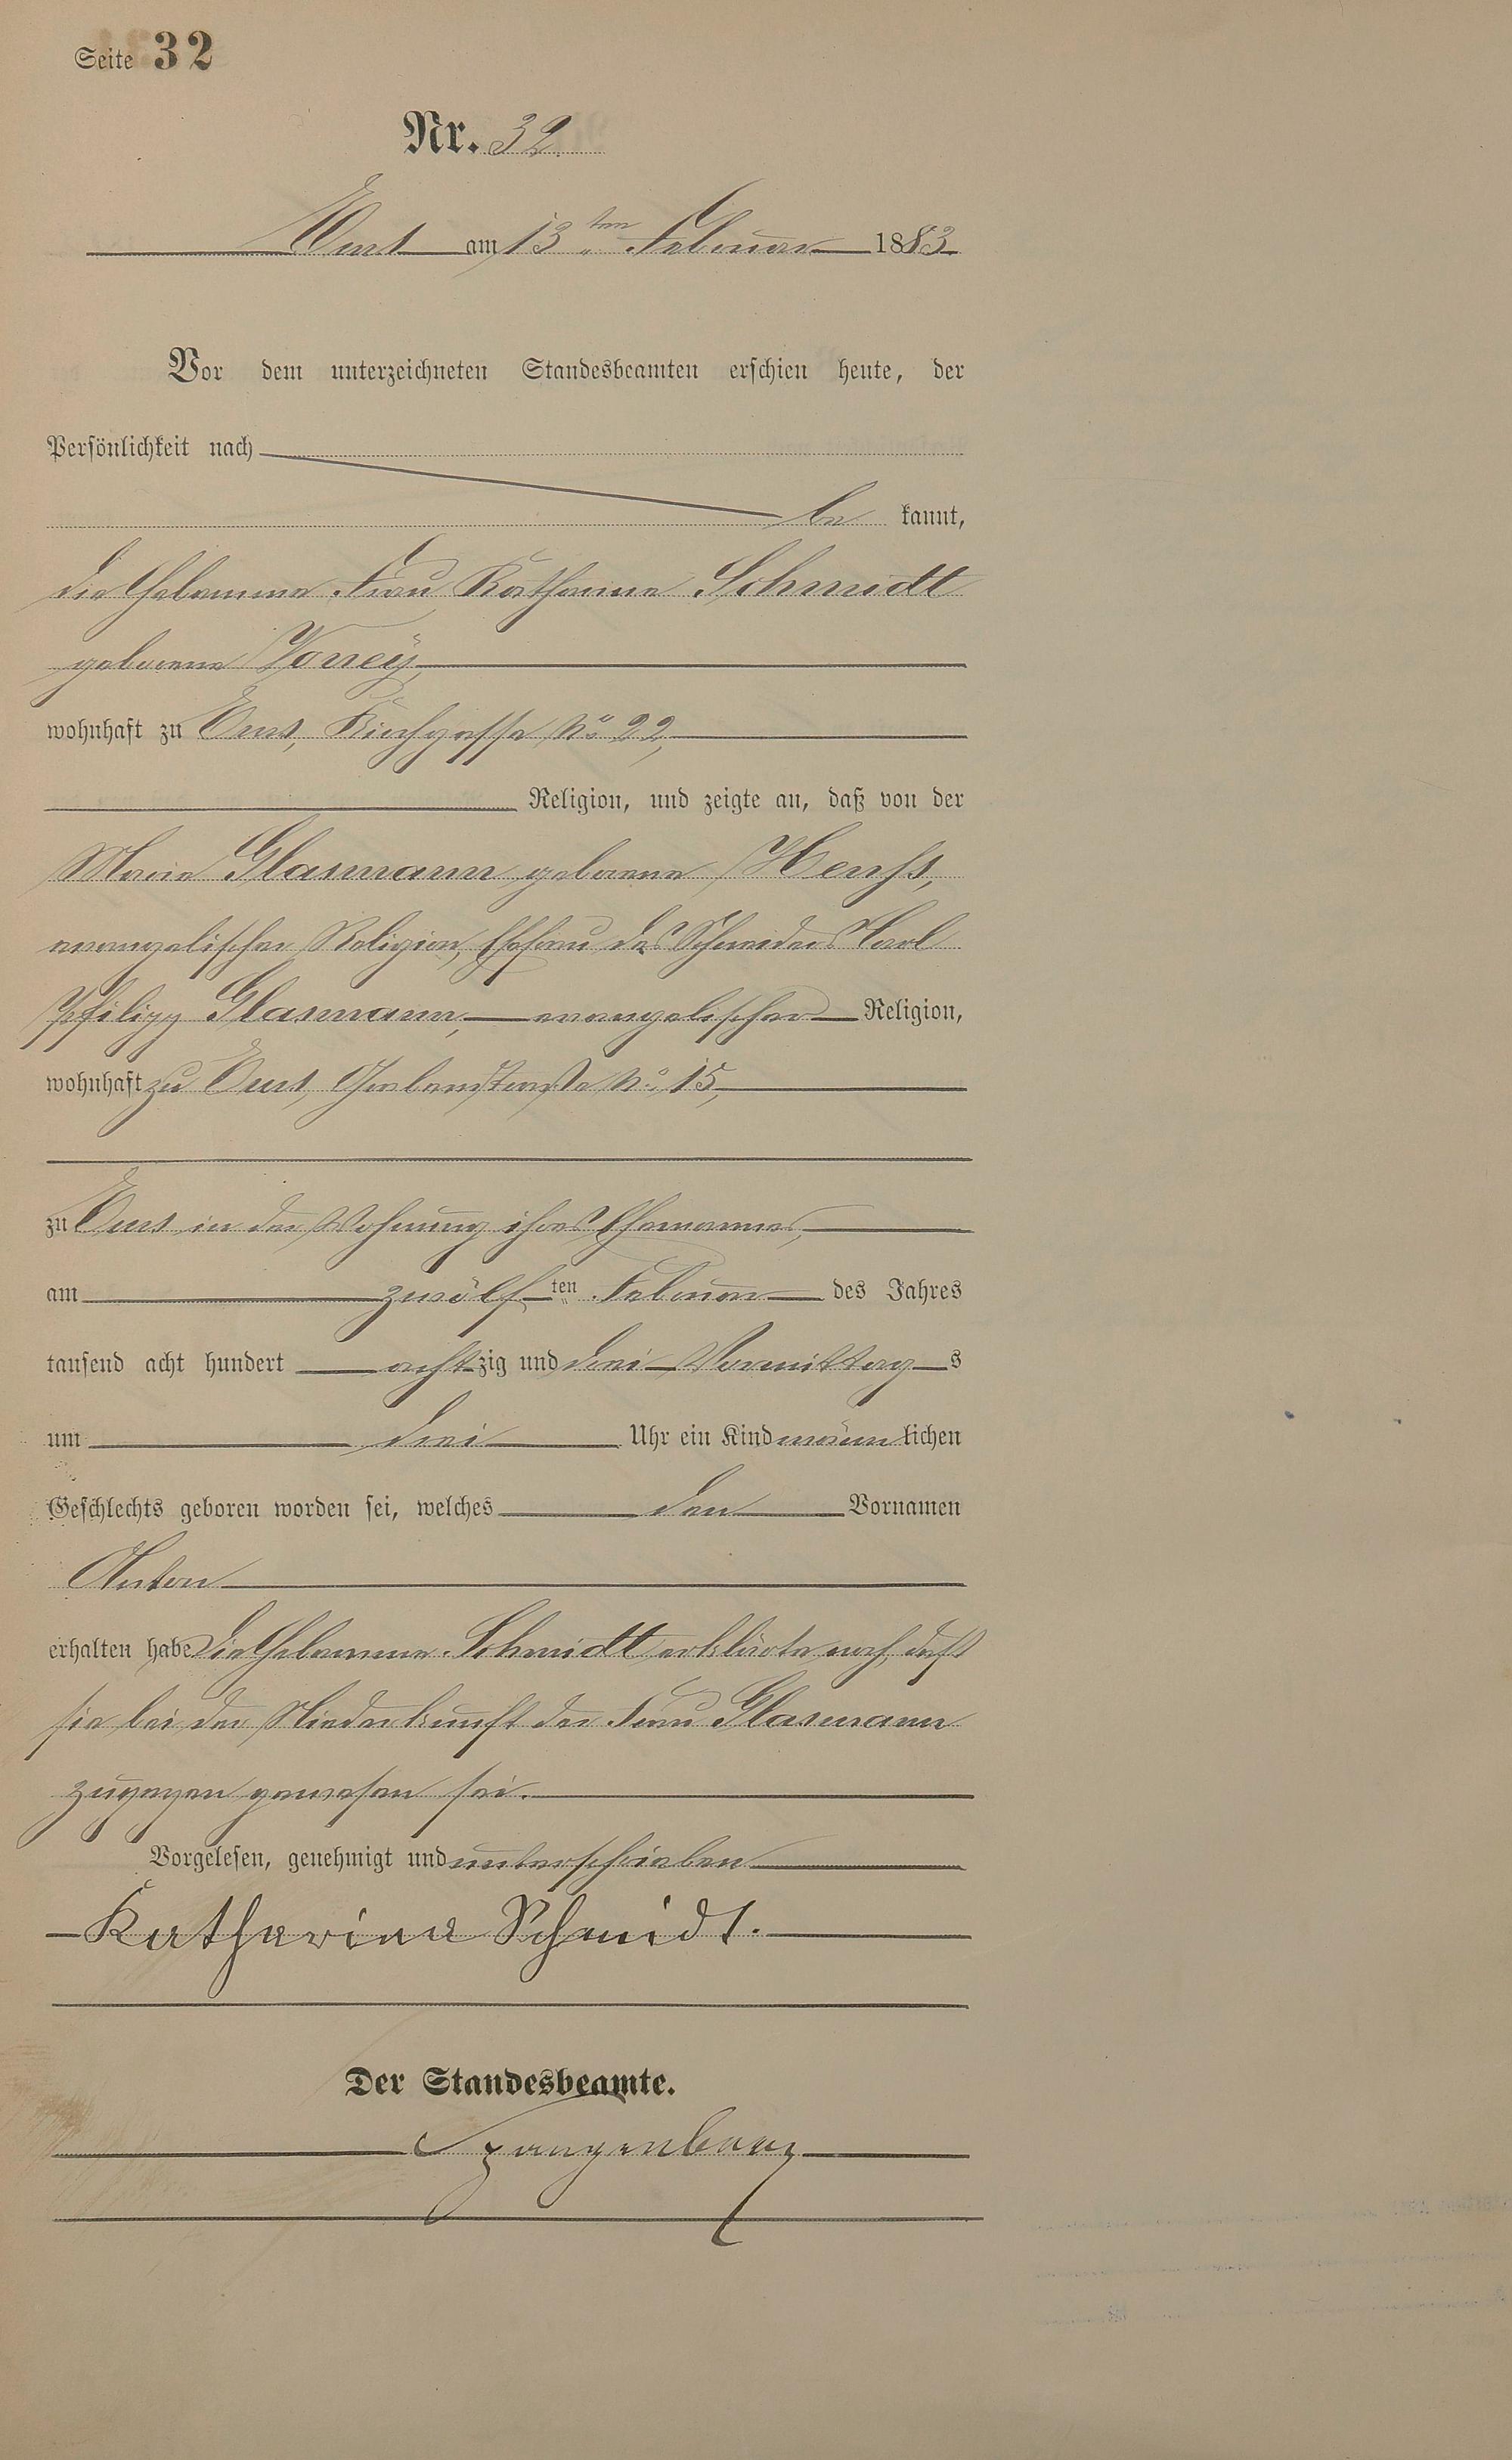 Seite 32
Nr. 32.
Ems am 13ten Februar 1883.
Vor dem unterzeichneten Standesbeamten erschien heute, der
Persönlichkeit nach
be kannt,
die Hebamme Frau Katharina Schmidt
geborene Vorreÿ,
wohnhaft zu Ems, Kirchgasse No 22,
Religion, und zeigte an, daß von der
Maria Glasmann geborene Henß,
evangelischer Religion, Ehefrau des Schneiders Karl
Philipp Glasmann, evangelischer Religion,
wohnhaft zu Ems, No 15,
zu Ems in der Wohnung ihres Ehemannes,
am zwölften Februar des Jahres
tausend acht hundert achtzig und drei Vormittags
um drei Uhr ein Kind männlichen
Geschlechts geboren worden sei, welches den Vornamen
Anton
erhalten habe. Die Hebamme Schmidt erklärte noch, daß
sie bei der Niederkunft der Frau Glasmann
zugegen gewesen sei.
Vorgelesen, genehmigt und unterschrieben
Katharina Schmidt.
Der Standesbeamte.
Spangenberg